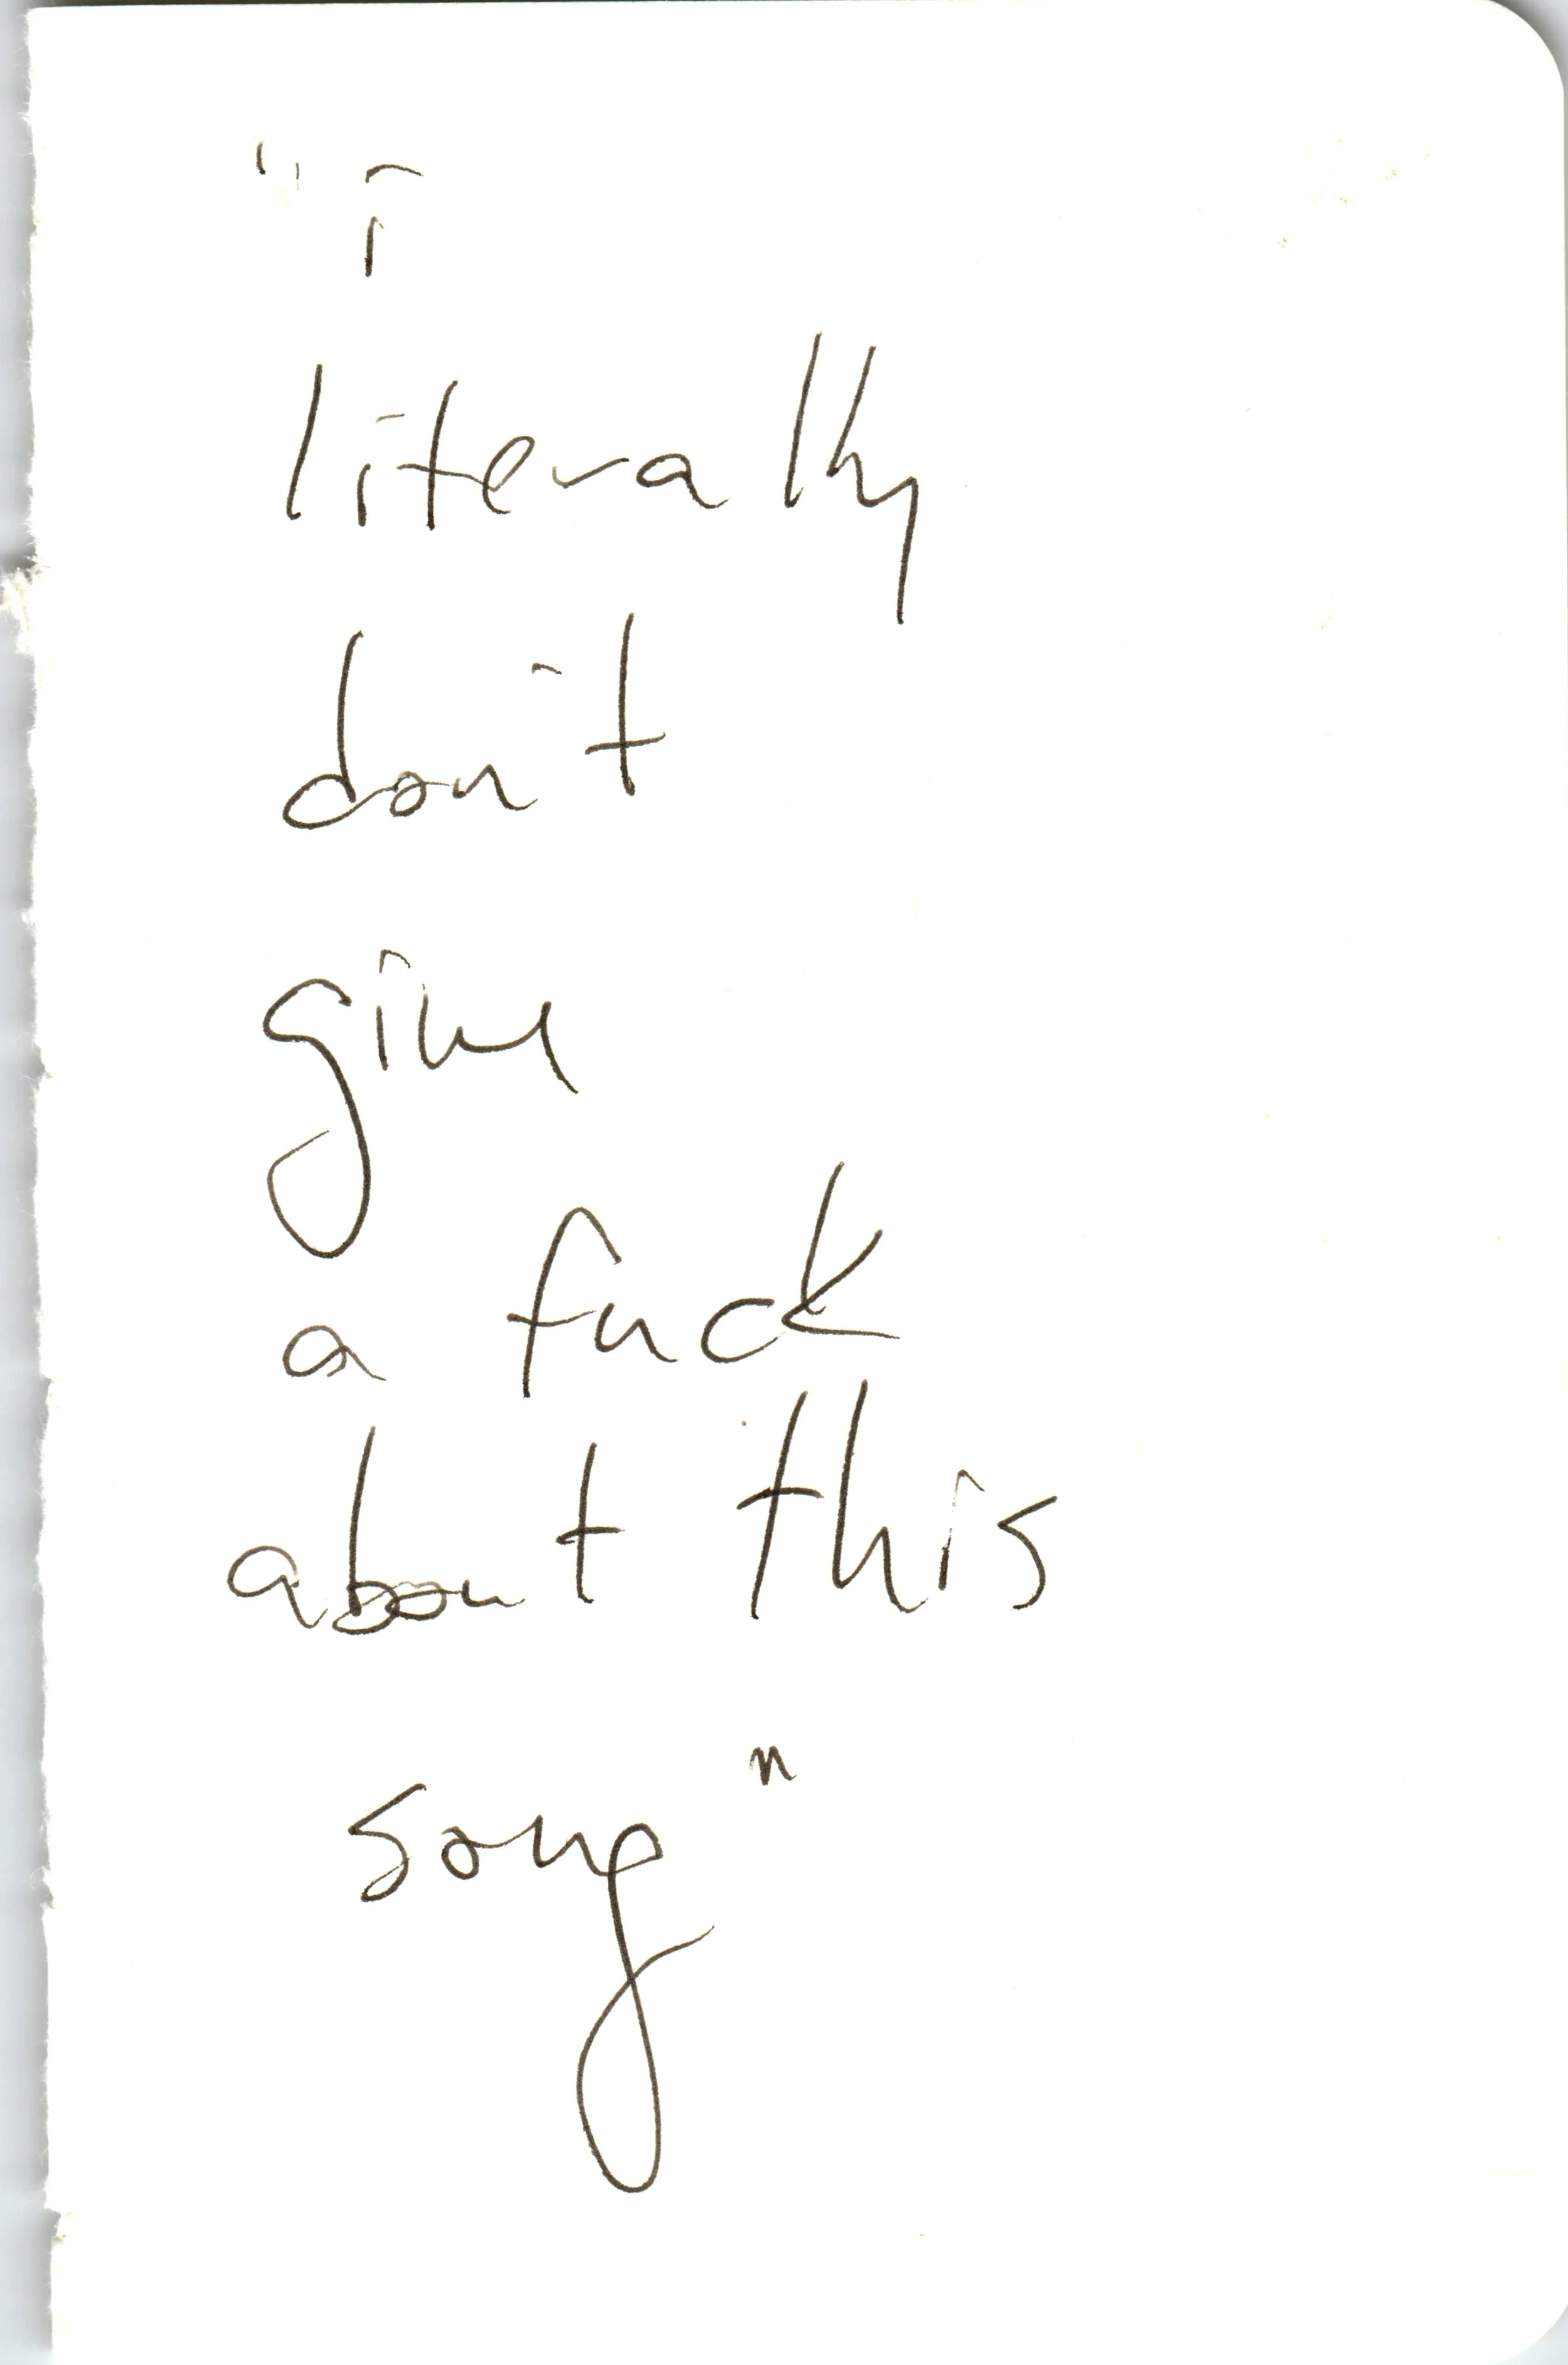 "i
literally
don't
give
a fuck
about this
song"